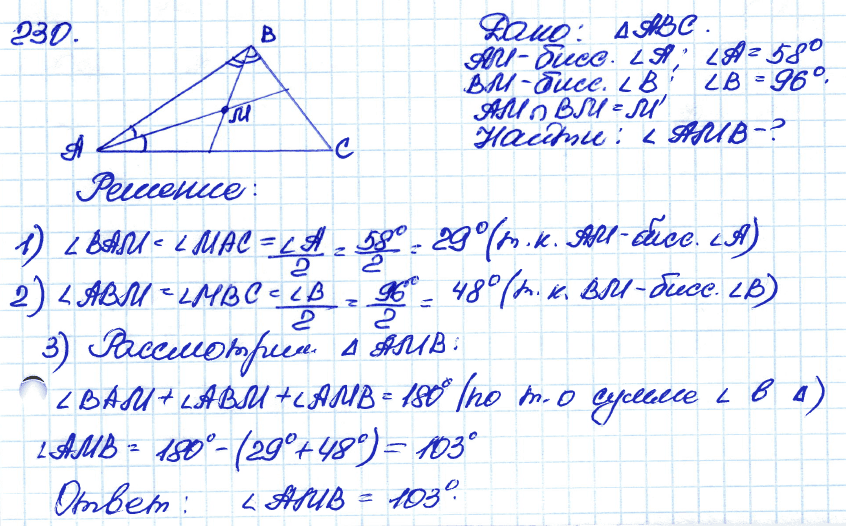 230.
B
M
A
C
Дано: △ABC.
AM - бисс. ∠A; ∠A = 58°
BM - бисс. ∠B; ∠B = 96°.
AM ∩ BM = M
Найти: ∠AMB - ?
Решение:
1) ∠BAM = ∠MAC = ∠A/2 = 58°/2 = 29° (т.к. AM - бисс. ∠A)
2) ∠ABM = ∠MBC = ∠B/2 = 96°/2 = 48° (т.к. BM - бисс. ∠B)
3) Рассмотрим △ AMB:
∠BAM + ∠ABM + ∠AMB = 180° (по т. о сумме ∠ в △)
∠AMB = 180° - (29° + 48°) = 103°
Ответ: ∠AMB = 103°.